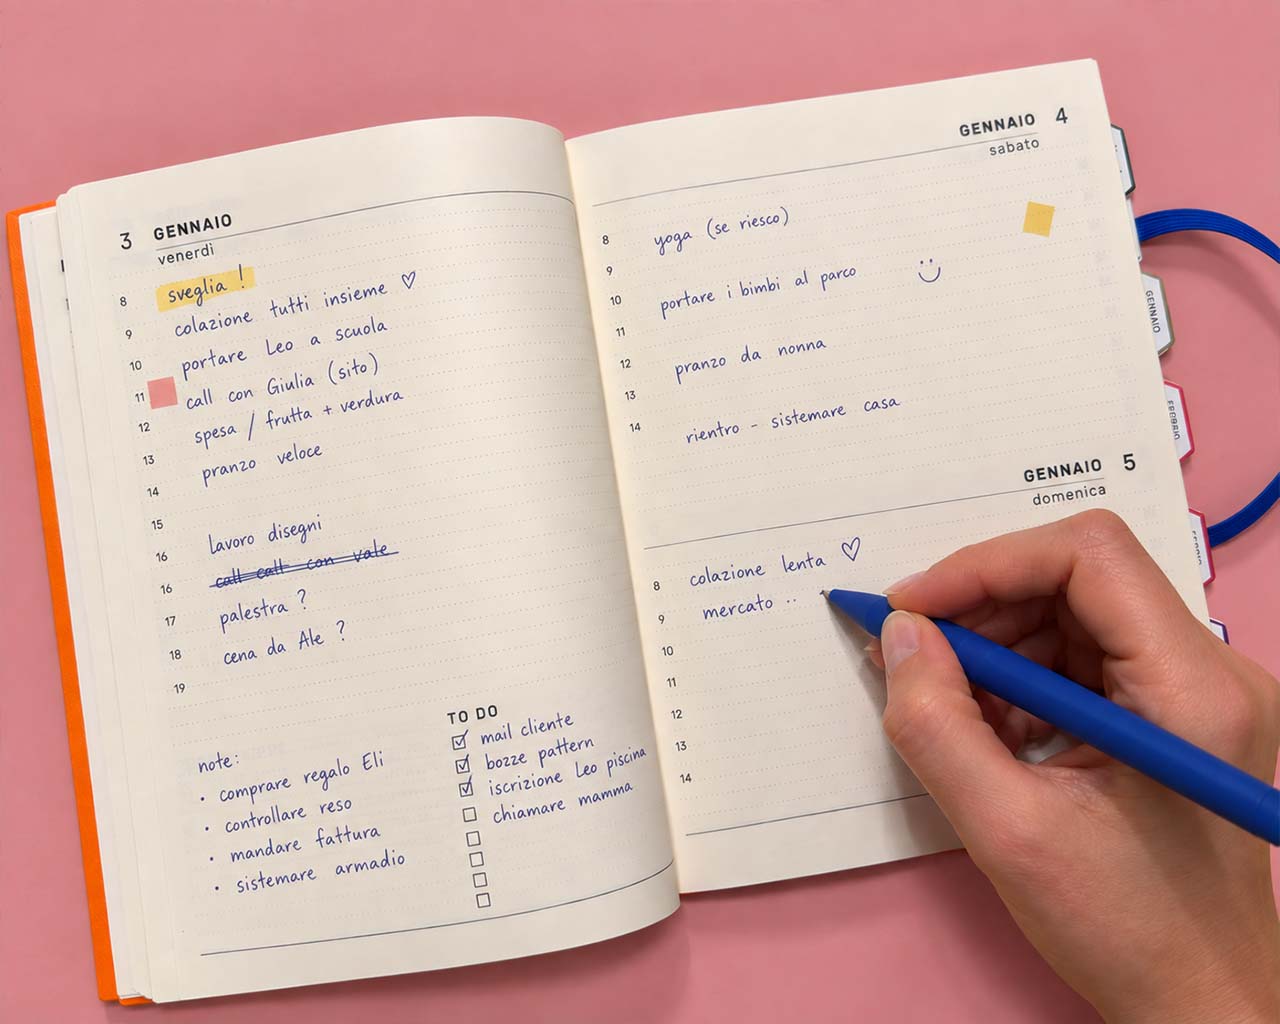 3 GENNAIO
venerdì
8 sveglia !
9 colazione tutti insieme ♡
10 portare Leo a scuola
11 call con Giulia (sito)
12 spesa / frutta + verdura
13 pranzo veloce
14
15 lavoro disegni
16 call call con vale
16 palestra ?
17 cena da Ale ?
18
19
note:
• comprare regalo Eli
• controllare reso
• mandare fattura
• sistemare armadio
TO DO
☑ mail cliente
☑ bozze pattern
☑ iscrizione Leo piscina
☐ chiamare mamma
☐
☐
☐
☐
GENNAIO 4
sabato
8 yoga (se riesco)
9
10 portare i bimbi al parco
11
12 pranzo da nonna
13
14 rientro - sistemare casa
GENNAIO 5
domenica
8 colazione lenta ♡
9 mercato ..
10
11
12
13
14
GENNAIO